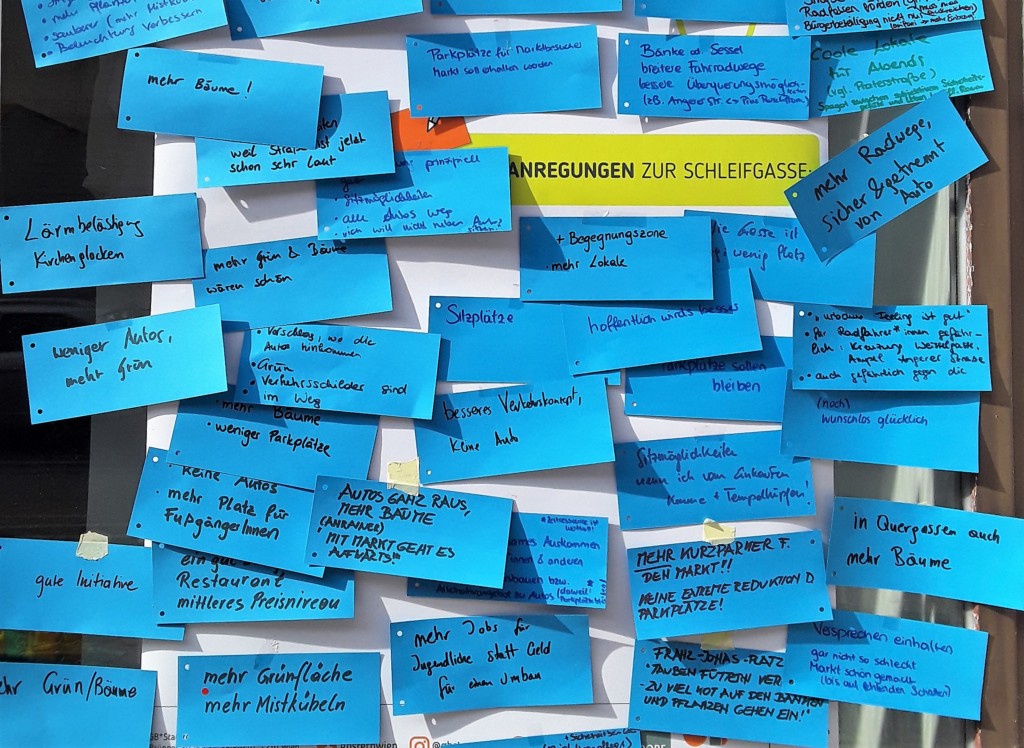 mehr Pflanzen
sauberer (mehr Mistkübel
Beleuchtung verbessern
Parkplätze für Marktbesucher
Markt soll erhalten werden
Bänke od. Sessel
breitere Fahrradwege
bessere Überquerungsmöglich
Radfahren fördern
Bürgerbeteiligung nicht nur
Coole Lokale
für Abends
(vgl. Praterstraße)
mehr Bäume!
weil Straße ist jetzt
schon sehr laut
prinzipiell
gut
Sitzmöglichkeiten
alle Autos weg
ich will nicht neben Autos
sitzen
ANREGUNGEN ZUR SCHLEIFGASSE:
mehr Radwege,
sicher & getrennt
von Auto
Lärmbelästigung
Kirchenglocken
mehr Grün & Bäume
wären schön
+ Begegnungszone
mehr Lokale
die Gasse ist
wenig Platz
weniger Autos,
mehr Grün
Vorschlag, wo die
Autos hinkommen
Grün
Verkehrsschilder sind
im Weg
Sitzplätze
hoffentlich wird's besser
Parkplätze sollen
bleiben
Feeling ist gut"
Für Radfahrer*innen gefähr-
lich: Kreuzung Weisselgasse,
Ampel Angerer Straße
auch gefährlich gegen die
(noch)
wunschlos glücklich
mehr Bäume
weniger Parkplätze
besseres Verkehrskonzept,
Keine Auto
Sitzmöglichkeiten
wenn ich vom Einkaufen
komme + Tempelhüpfen!
Keine Autos
mehr Platz für
FußgängerInnen
AUTOS GANZ RAUS,
MEHR BÄUME
(ANRAINER)
MIT MARKT GEHT ES
AUFWÄRTS!"
Auskommen
& anderen
bzw.
zu Autos (daweil:
MEHR KURZPARKER F.
DEN MARKT!!
KEINE EXTREME REDUKTION D
PARKPLÄTZE!
in Quergassen auch
mehr Bäume
gute Initiative
ein gutes
Restaurant
mittleres Preisniveau
mehr Jobs für
Jugendliche statt Geld
für einen Umbau
FRANZ-JONAS-PLATZ
TAUBEN FÜTTERN VER
- ZU VIEL KOT AUF DEN BÄNKEN
UND PFLANZEN GEHEN EIN!"
Versprechen einhalten
gar nicht so schlecht
Markt schön gemacht
(bis auf fehlenden Schatten)
Grün/Bäume
mehr Grünfläche
mehr Mistkübeln